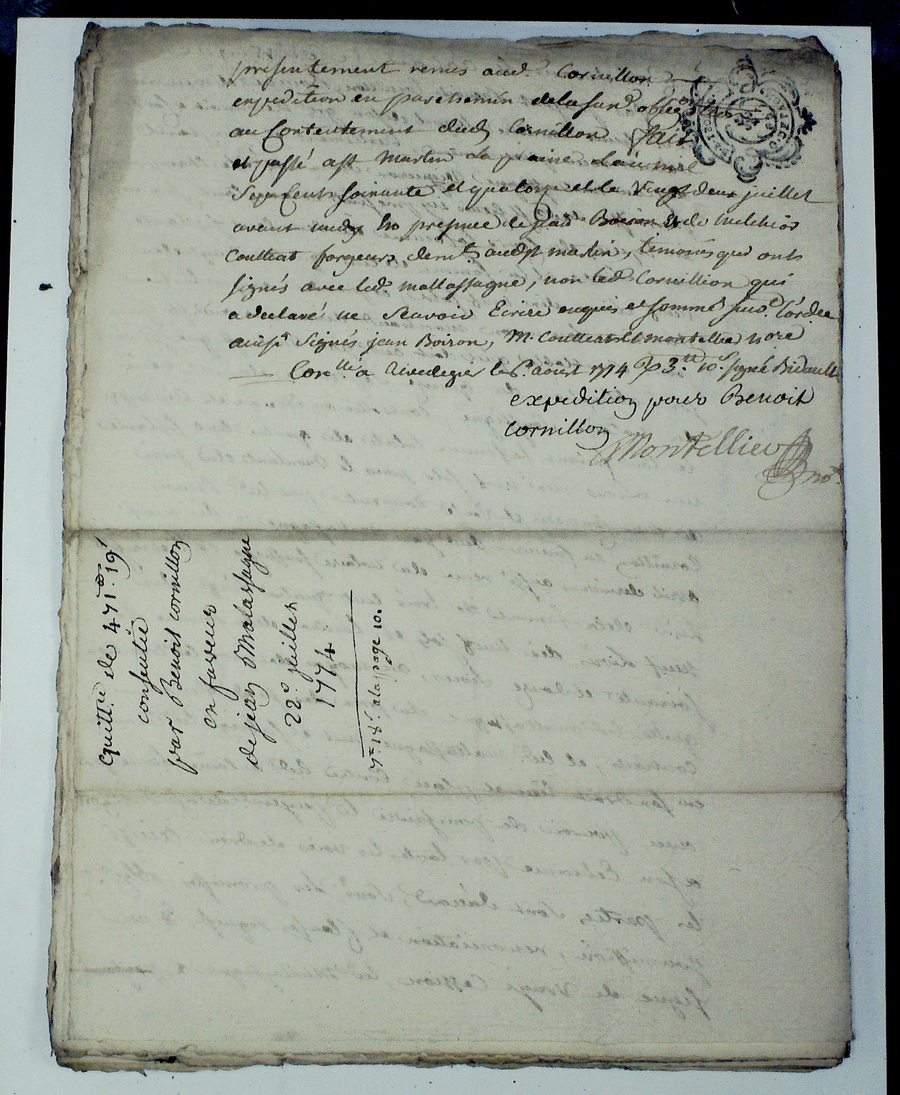 présentement remis aud. Cornillon
expedition en parchemin de la susd.
au Contentement dud. Cornillon fait
et passé a St. Martin La plaine L'an mil
Sept Cent soixante et quatorze et le Vingt deux juillet
avant midy En présence de jean Boiron & de Melchior
Coulleat forgeurs dem.ts audt St martin, temoins qui ont
signés avec led. mallassagne, non led. Cornillion qui
a declaré ne Scavoir Ecrire enquis et sommé
ainsi Signés jean Boiron, M. Coulleat et Montellier nore
Con.lle a Rivedegier le 6.e aoust 1774 3.tt 10.s signé Bidault
expedition pour Benoit
Cornillon
Montellier no.re
Quitt.ce de 471.# 19.s
consentie
par Benoit Cornillon
en faveur
de jean Malassagne
22.e juillet
1774
7.# 18.s a la page 10.